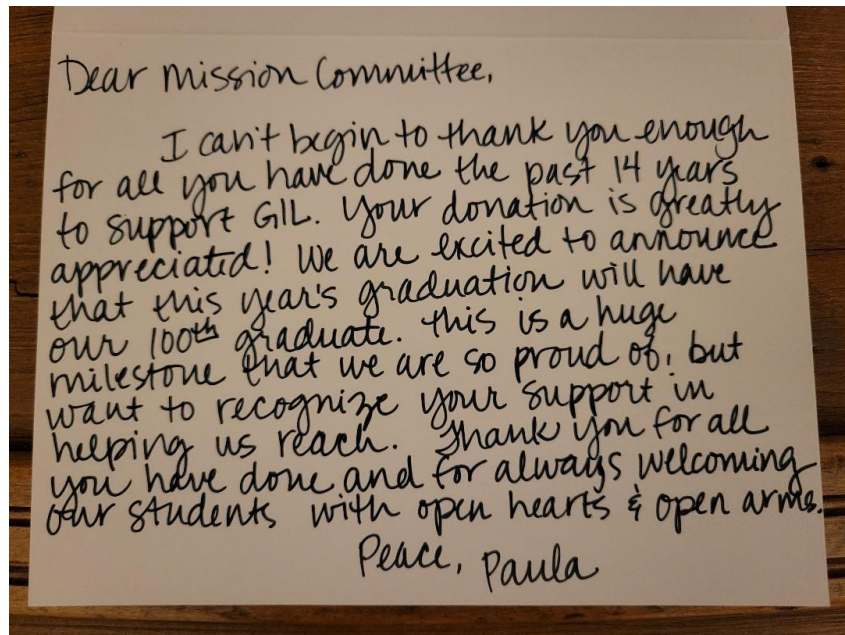 Dear Mission Committee,
I can't begin to thank you enough
for all you have done the past 14 years
to support GIL. Your donation is greatly
appreciated! We are excited to announce
that this year's graduation will have
our 100th graduate. This is a huge
milestone that we are so proud of, but
want to recognize your support in
helping us reach. Thank you for all
you have done and for always welcoming
our students with open hearts & open arms.
Peace, Paula